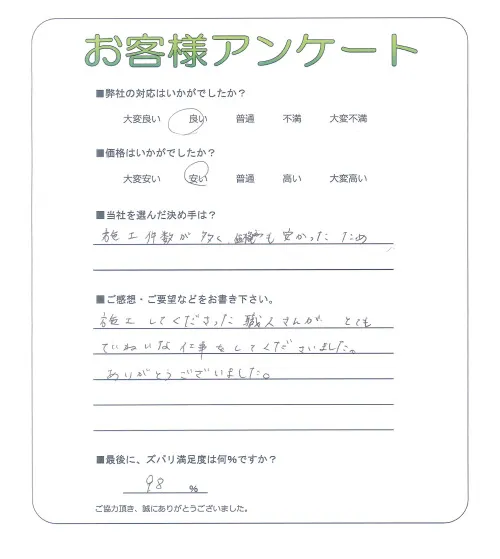 お客様アンケート
■弊社の対応はいかがでしたか？
大変良い 良い 普通 不満 大変不満
■価格はいかがでしたか？
大変安い 安い 普通 高い 大変高い
■当社を選んだ決め手は？
施工件数が多く、価格も安かったため
■ご感想・ご要望などをお書き下さい。
施工してくださった職人さんが、とても
ていねいな仕事をしてくださいました。
ありがとうございました。
■最後に、ズバリ満足度は何％ですか？
98 ％
ご協力頂き、誠にありがとうございました。